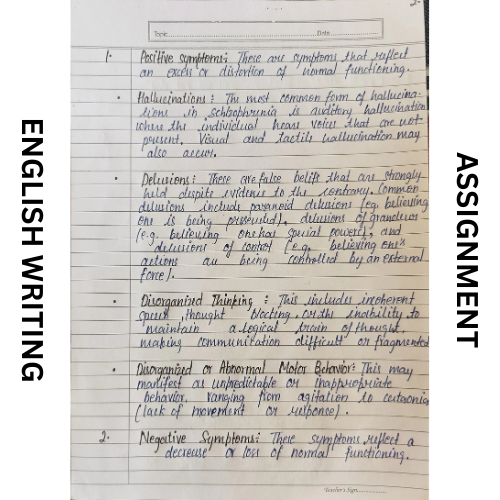 ENGLISH WRITING
ASSIGNMENT
Topic
Date
1. Positive symptoms: These are symptoms that reflect
an excess or distortion of normal functioning.
Hallucinations: The most common form of hallucina-
tions in schizophrenia is auditory hallucinations
where the individual hears voices that are not
present. Visual and tactile hallucination may
also occur.
Delusions: These are false beliefs that are strongly
held despite evidence to the contrary. Common
delusions include paranoid delusions (eg. believing
one is being persecuted), delusions of grandeur
(e.g. believing one has special powers), and
delusions of control (e.g. believing one's
actions are being controlled by an external
force).
Disorganized Thinking: This includes incoherent
speech, thought blocking, or the inability to
maintain a logical train of thought,
making communication difficult or fragmented
Disorganized or Abnormal Motor Behavior: This may
manifest as unpredictable or inappropriate
behavior, ranging from agitation to catatonia
(lack of movement or response).
2. Negative Symptoms: These symptoms reflect a
decrease or loss of normal functioning.
Teacher's Sign